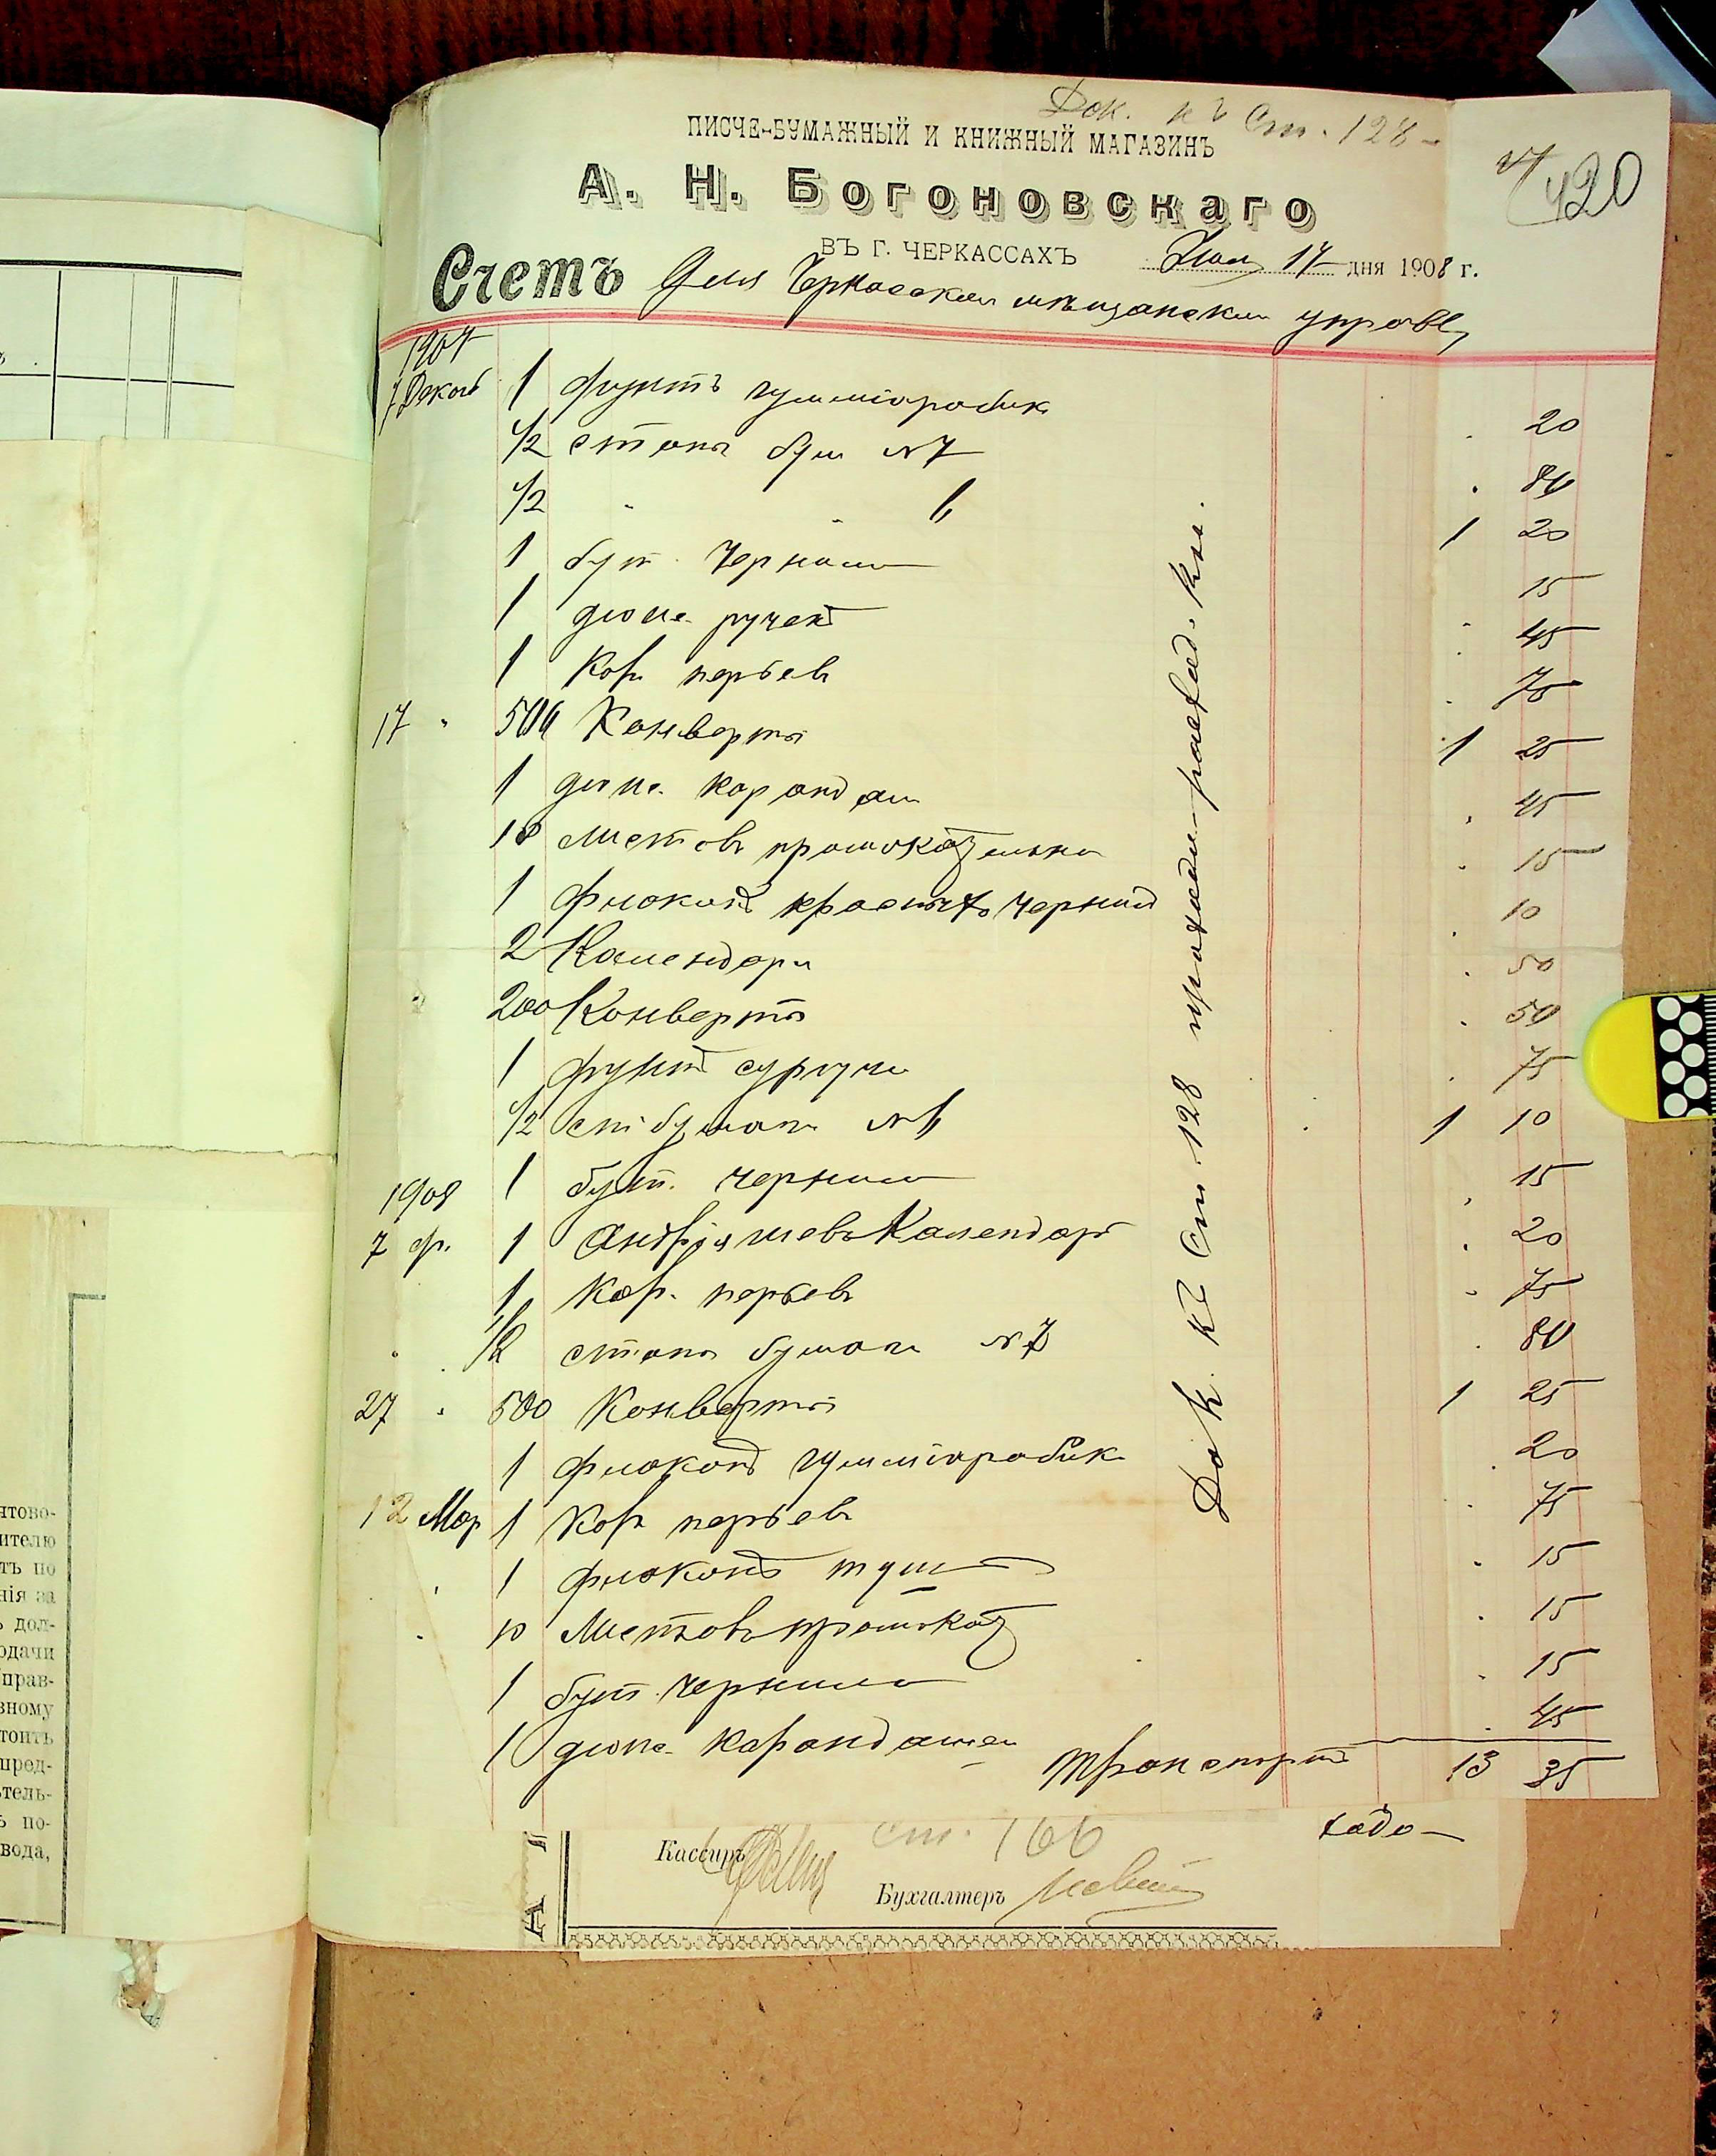 Док. къ Ст. 128
420
ПИСЧЕ-БУМАЖНЫЙ И КНИЖНЫЙ МАГАЗИНЪ
А. Н. Богоновскаго
ВЪ Г. ЧЕРКАССАХЪ
17 дня 1908 г.
Счетъ Для Черкасской мѣщанской управы
1907
7 Декаб 1 фунтъ гумміарабик . 20
1/2 стопы бум №7 . 80
1/2 " " 6 1 20
1 бут. Чернил 15
1 дюж. ручекъ . 45
1 Кор перьевъ . 75
17 " 500 Конверты 1 25
1 дюж. каранд аш . 45
10 листовъ промокательн . 15
1 флаконъ красныхъ чернил 10
2 Календаря . 50
200 Конверты . 50
1 фунтъ сургучу . 75
1/2 ст бумаги №6 1 10
1 бут. чернил . 15
1908
7 ф. 1 Андріяшевъ Календарь . 20
1 Кор. перьевъ . 75
" 1/2 стопы бумаги №7 . 80
27 " 500 Конверты 1 25
1 флаконъ гумміарабик . 20
12 Мар 1 Кор перьевъ . 75
1 флаконъ туши . 15
10 Листовъ промокат . 15
1 бут. чернила . 15
1 дюж. карандашей . 45
Транспортъ 13 35
Док. къ Ст. 128 расход. кн.
ст. 166
Кассиръ
Бухгалтеръ
чтово-
ителю
ть по
нія за
ь дол-
одачи
прав-
вному
тоитъ
пред-
тель-
ь по-
вода,